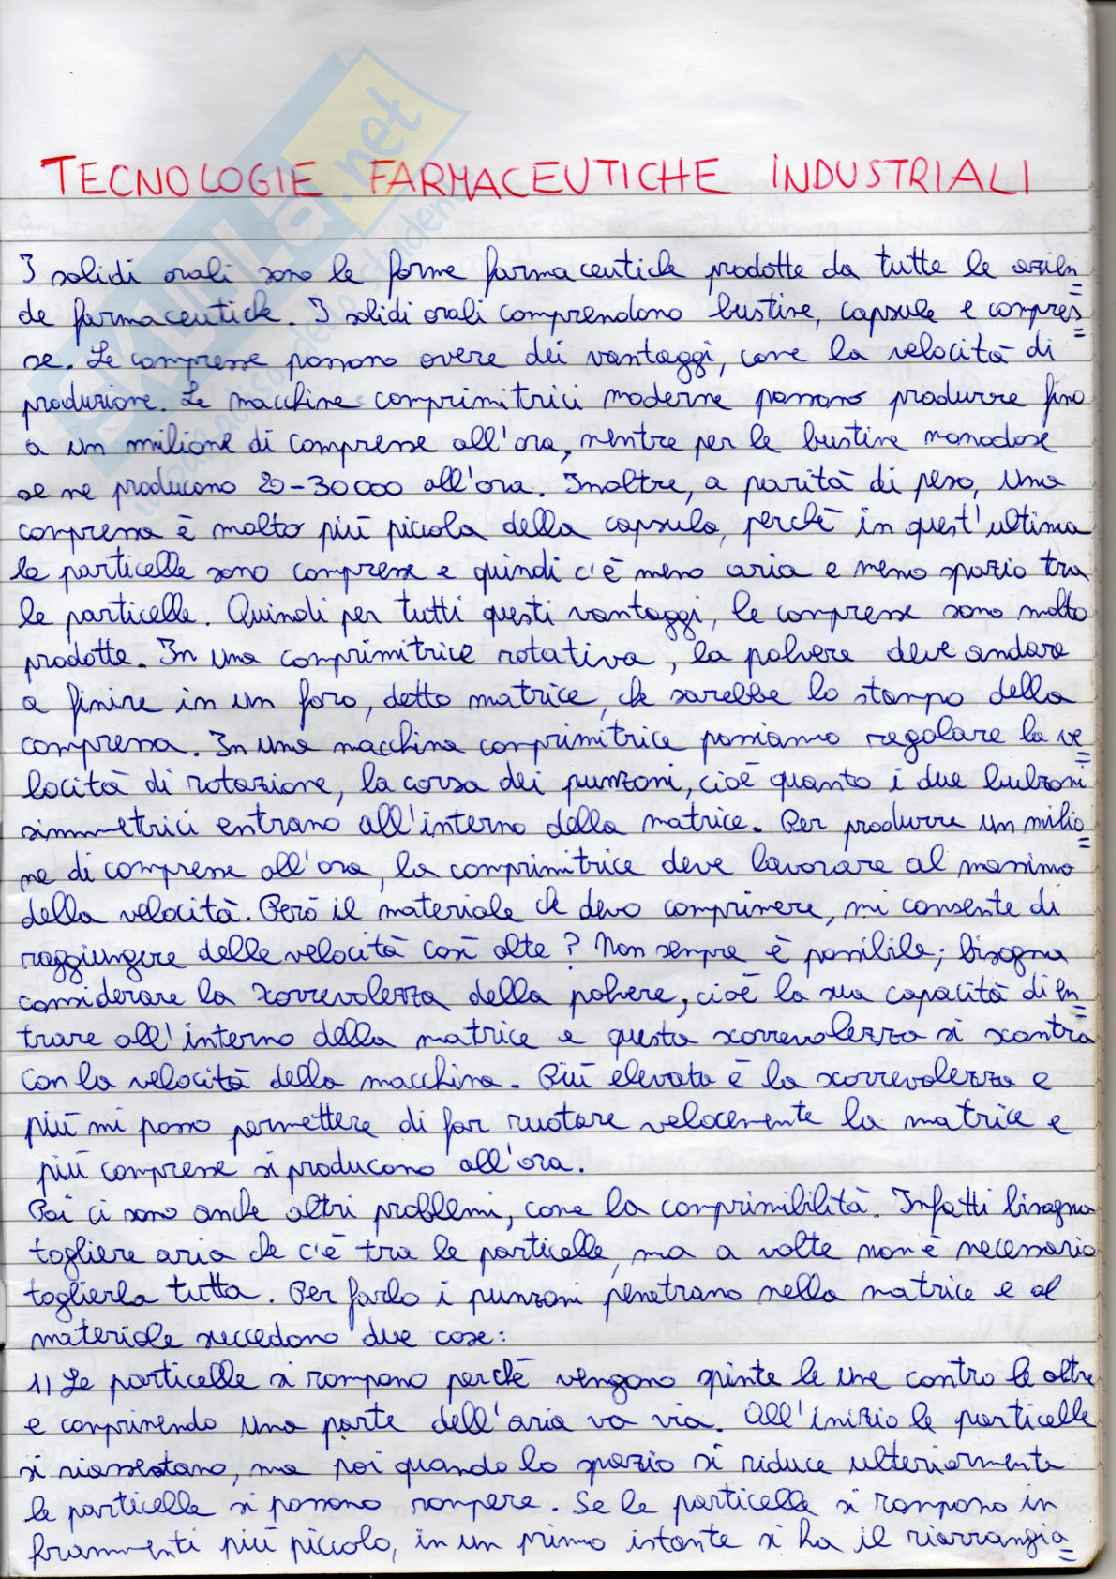 TECNOLOGIE FARMACEUTICHE INDUSTRIALI
I solidi orali sono le forme farmaceutiche prodotte da tutte le azien=
de farmaceutiche. I solidi orali comprendono bustine, capsule e compres=
se. Le compresse possono avere dei vantaggi, come la velocità di
produzione. Le macchine comprimitrici moderne possono produrre fino
a un milione di compresse all'ora, mentre per le bustine monodose
se ne producono 20-30000 all'ora. Inoltre, a parità di peso, una
compressa è molto più piccola della capsula, perchè in quest'ultima
le particelle sono compresse e quindi c'è meno aria e meno spazio tra
le particelle. Quindi per tutti questi vantaggi, le compresse sono molto
prodotte. In una comprimitrice rotativa, la polvere deve andare
a finire in un foro, detto matrice, che sarebbe lo stampo della
compressa. In una macchina comprimitrice possiamo regolare la ve=
locità di rotazione, la corsa dei punzoni, cioè quanto i due bulzoni
simmetrici entrano all'interno della matrice. Per produrre un milio=
ne di compresse all'ora, la comprimitrice deve lavorare al massimo
della velocità. Però il materiale che devo comprimere, mi consente di
raggiungere delle velocità così alte? Non sempre è possibile; bisogna
considerare la scorrevolezza della polvere, cioè la sua capacità di en=
trare all'interno della matrice e questa scorrevolezza si scontra
con la velocità della macchina. Più elevata è la scorrevolezza e
più mi posso permettere di far ruotare velocemente la matrice e
più compresse si producono all'ora.
Poi ci sono anche altri problemi, come la comprimibilità. Infatti bisogna
togliere aria che c'è tra le particelle, ma a volte non è necessario
toglierla tutta. Per farlo i punzoni penetrano nella matrice e al
materiale succedono due cose:
1) Le particelle si rompono perchè vengono spinte le une contro le altre
e comprimendo una parte dell'aria va via. All'inizio le particelle
si riassestano, ma poi quando lo spazio si riduce ulteriormente
le particelle si possono rompere. Se le particelle si rompono in
frammenti più piccolo, in un primo istante si ha il riarrangia=
SKUOLA.net